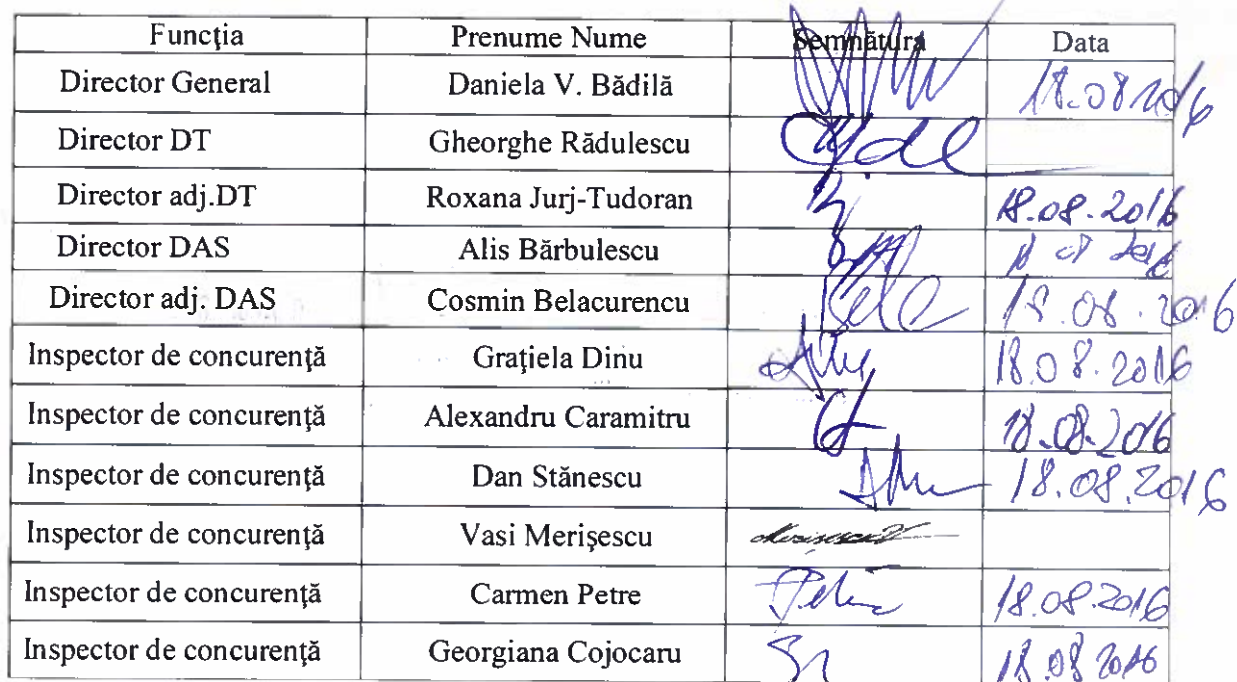 Funcţia Prenume Nume Semnătura Data
Director General Daniela V. Bădilă 18.08.2016
Director DT Gheorghe Rădulescu
Director adj.DT Roxana Jurj-Tudoran 18.08.2016
Director DAS Alis Bărbulescu
Director adj. DAS Cosmin Belacurencu 18.08.2016
Inspector de concurenţă Graţiela Dinu 18.08.2016
Inspector de concurenţă Alexandru Caramitru 18.08.2016
Inspector de concurenţă Dan Stănescu 18.08.2016
Inspector de concurenţă Vasi Merişescu
Inspector de concurenţă Carmen Petre Petre 18.08.2016
Inspector de concurenţă Georgiana Cojocaru 18.08 2016